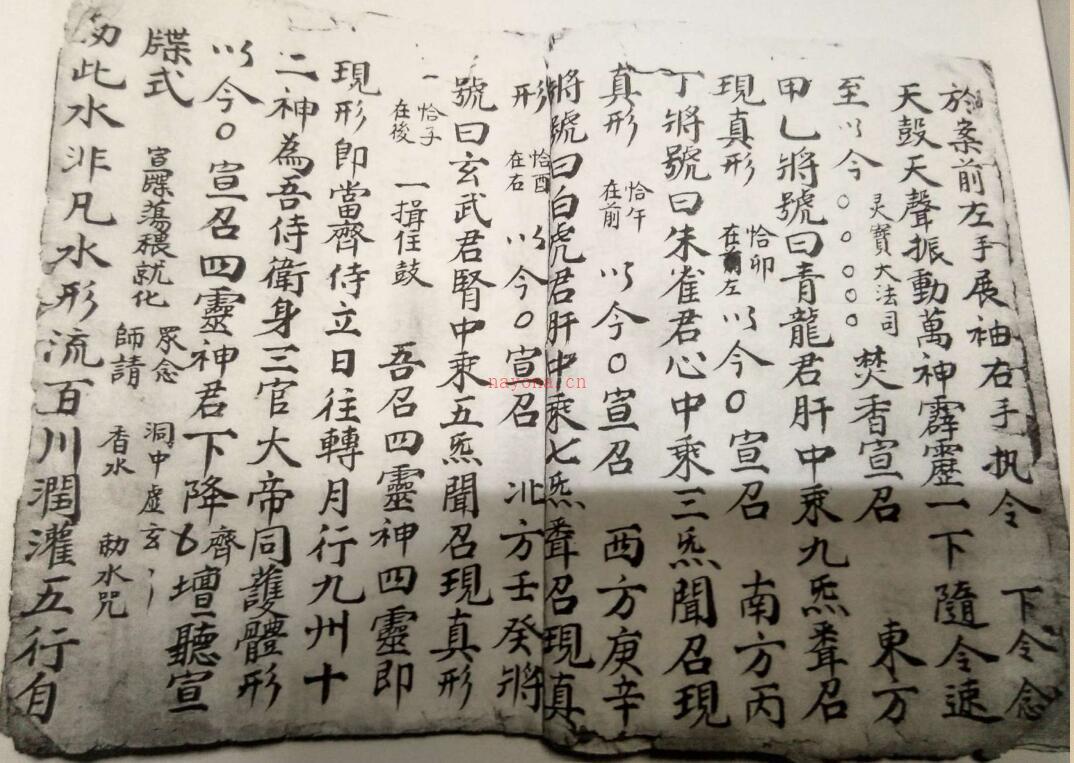 於案前左手展袖右手执令 下令念
天鼓天聲振動萬神霹靂一下隨令速
至以今○○○○○ 灵寶大法司 焚香宣召 東方
甲乙將號曰青龍君肝中乘九炁聞召
現真形 恰卯在前左 以今○宣召 南方丙
丁將號曰朱雀君心中乘三炁聞召現
真形 恰午在前 以今○宣召 西方庚辛
將號曰白虎君肝中乘七炁聞召現真
形 恰酉在右 以今○宣召 北方壬癸將
號曰玄武君腎中乘五炁聞召現真形
一 恰子在後 一揖住鼓 吾召四靈神四靈即
現形即當齊侍立日往轉月行九州十
二神為吾侍衛身三官大帝同護體形
以今○宣召四靈神君下降齊壇聽宣
牒式 宣牒蕩穢就化 眾念師請 洞中虛玄 香水 勅水咒
勅此水非凡水形流百川潤灌五行自
nayona.cn